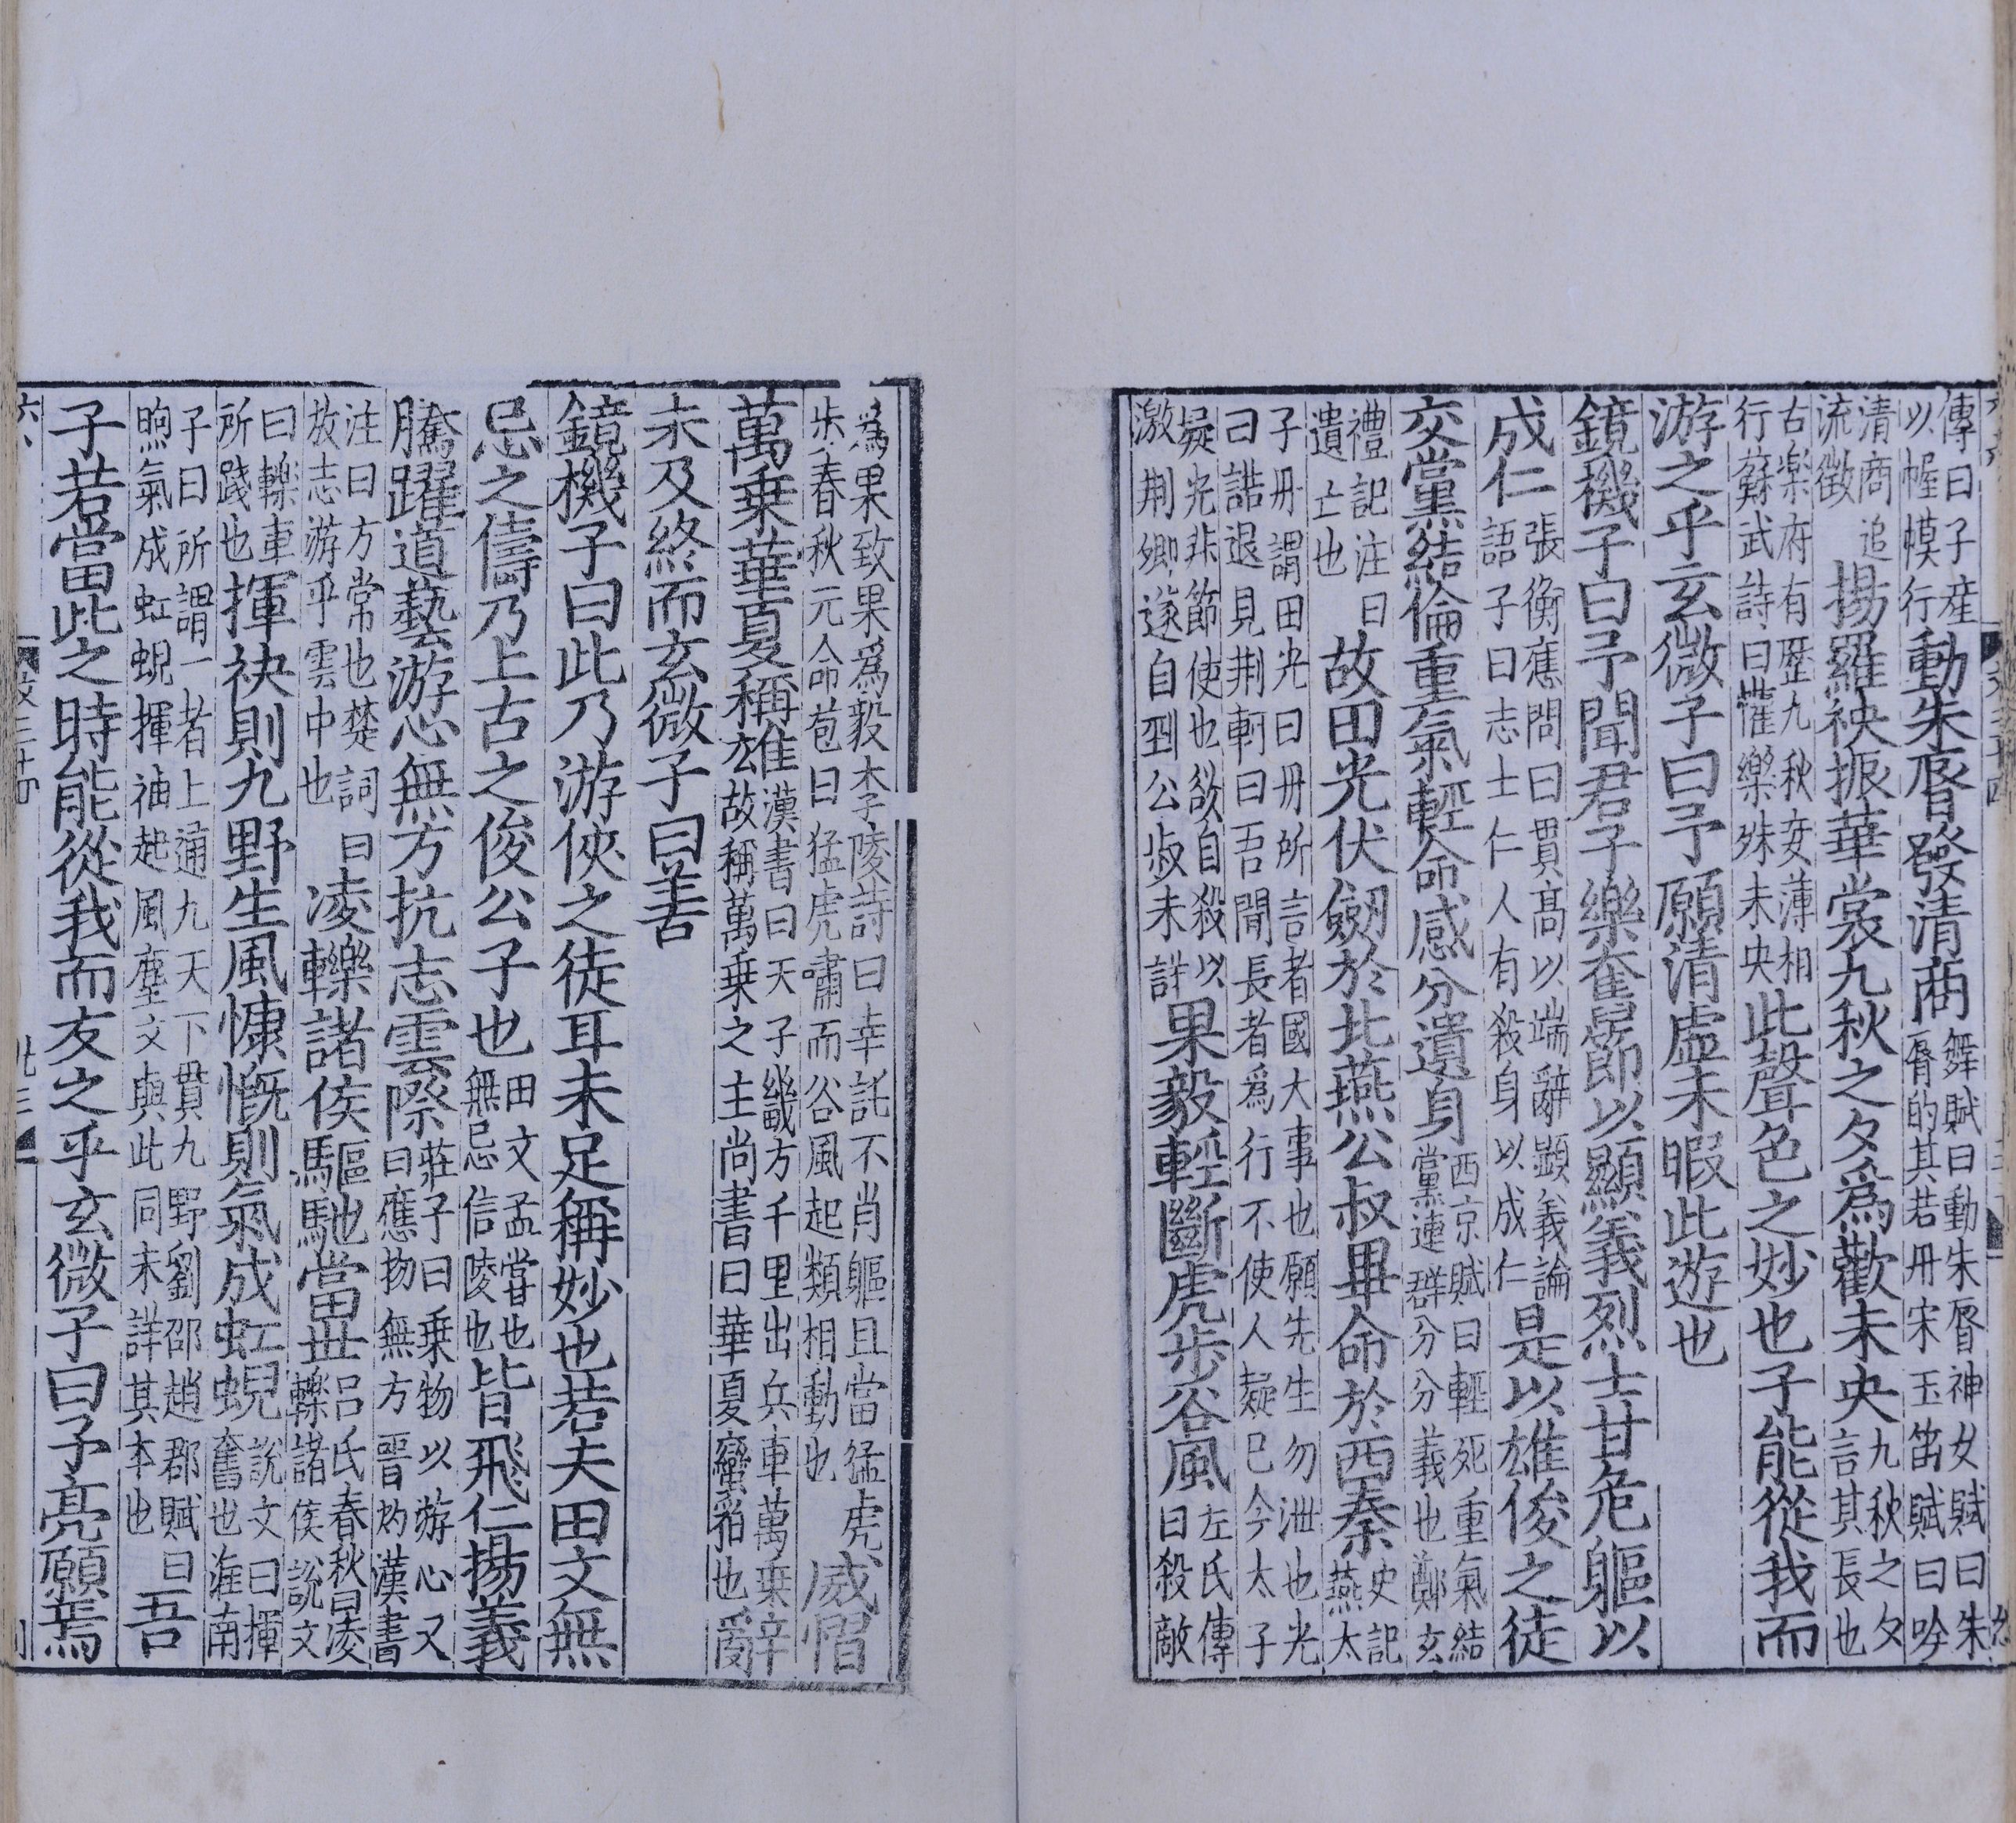 傳曰子產
以幄幙行
動朱脣發清商
舞賦曰動朱脣神女賦曰朱
脣的其若丹宋玉笛賦曰吟
清商追
流徵
揚羅袂振華裳九秋之夕爲歡未央
九秋之夕
言其長也
古樂府有歷九秋妾薄相
行蘇武詩曰懽樂殊未央
此聲色之妙也子能從我而
游之乎玄微子曰予願清虛未暇此遊也
鏡機子曰予聞君子樂奮節以顯義烈士甘危軀以
成仁
張衡應問曰貫高以端辭顯義論
語子曰志士仁人有殺身以成仁
是以雄俊之徒
交黨結倫重氣輕命感分遺身
西京賦曰輕死重氣結
黨連群分分義也鄭玄
禮記注曰
遺亡也
故田光伏劒於北燕公叔畢命於西秦
史記
燕太
子丹謂田光曰丹所言者國大事也願先生勿泄也光
曰諾退見荆軻曰吾聞長者爲行不使人疑已今太子
疑光非節使也欲自殺以
激荆卿遂自剄公叔未詳
果毅輕斷虎步谷風
左氏傳
曰殺敵
爲果致果爲毅李陵詩曰幸託不肖軀且當猛虎
步春秋元命苞曰猛虎嘯而谷風起類相動也
威慴
萬乗華夏稱雄
漢書曰天子畿方千里出兵車萬乗辭
故稱萬乗之主尚書曰華夏蠻貊也
未及終而玄微子曰善
鏡機子曰此乃游俠之徒耳未足稱妙也若夫田文無
忌之儔乃上古之俊公子也
田文孟甞也
無忌信陵也
皆飛仁揚義
騰躍道藝游心無方抗志雲際
莊子曰乗物以游心又
曰應物無方晋灼漢書
注曰方常也楚詞曰
故志游乎雲中也
凌轢諸侯驅馳當世
呂氏春秋曰凌
轢諸侯說文
曰轢車
所踐也
揮袂則九野生風慷慨則氣成虹蜺
說文曰揮
奮也淮南
子曰所謂一者上通九天下貫九野劉邵趙郡賦曰
煦氣成虹蜺揮袖起風塵文與此同未詳其本也
吾
子若當此之時能從我而友之乎玄微子曰予亮願焉